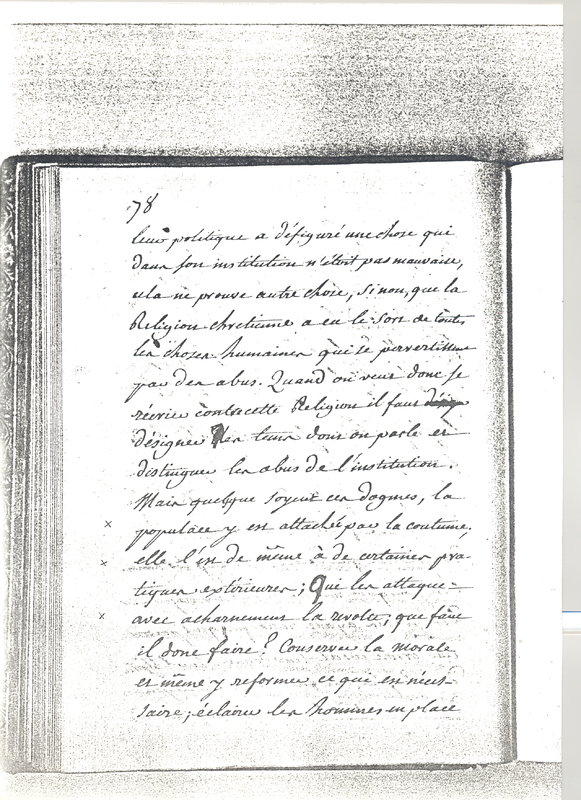 78
leur politique a défiguré une chose qui
dans son institution n'étoit pas mauvaise,
cela ne prouve autre chose, Sinon, que la
Religion chretienne a eu le Sort de toutes
les choses humaines qui se pervertissent
par des abus. Quand on veut donc se
récrier contre cette Religion il faut
désigner les tems dont on parle et
distinguer les abus de l'institution.
Mais quelque soyent ces dogmes, la
populace y est attachée par la coutume,
elle l'est de même à de certaines pra-
tiques extérieures; Qui les attaque
avec acharnement la revolte; que faut
il donc faire? Conserver la morale
et même y reformer ce qui en néces-
saire; éclairer les hommes en place